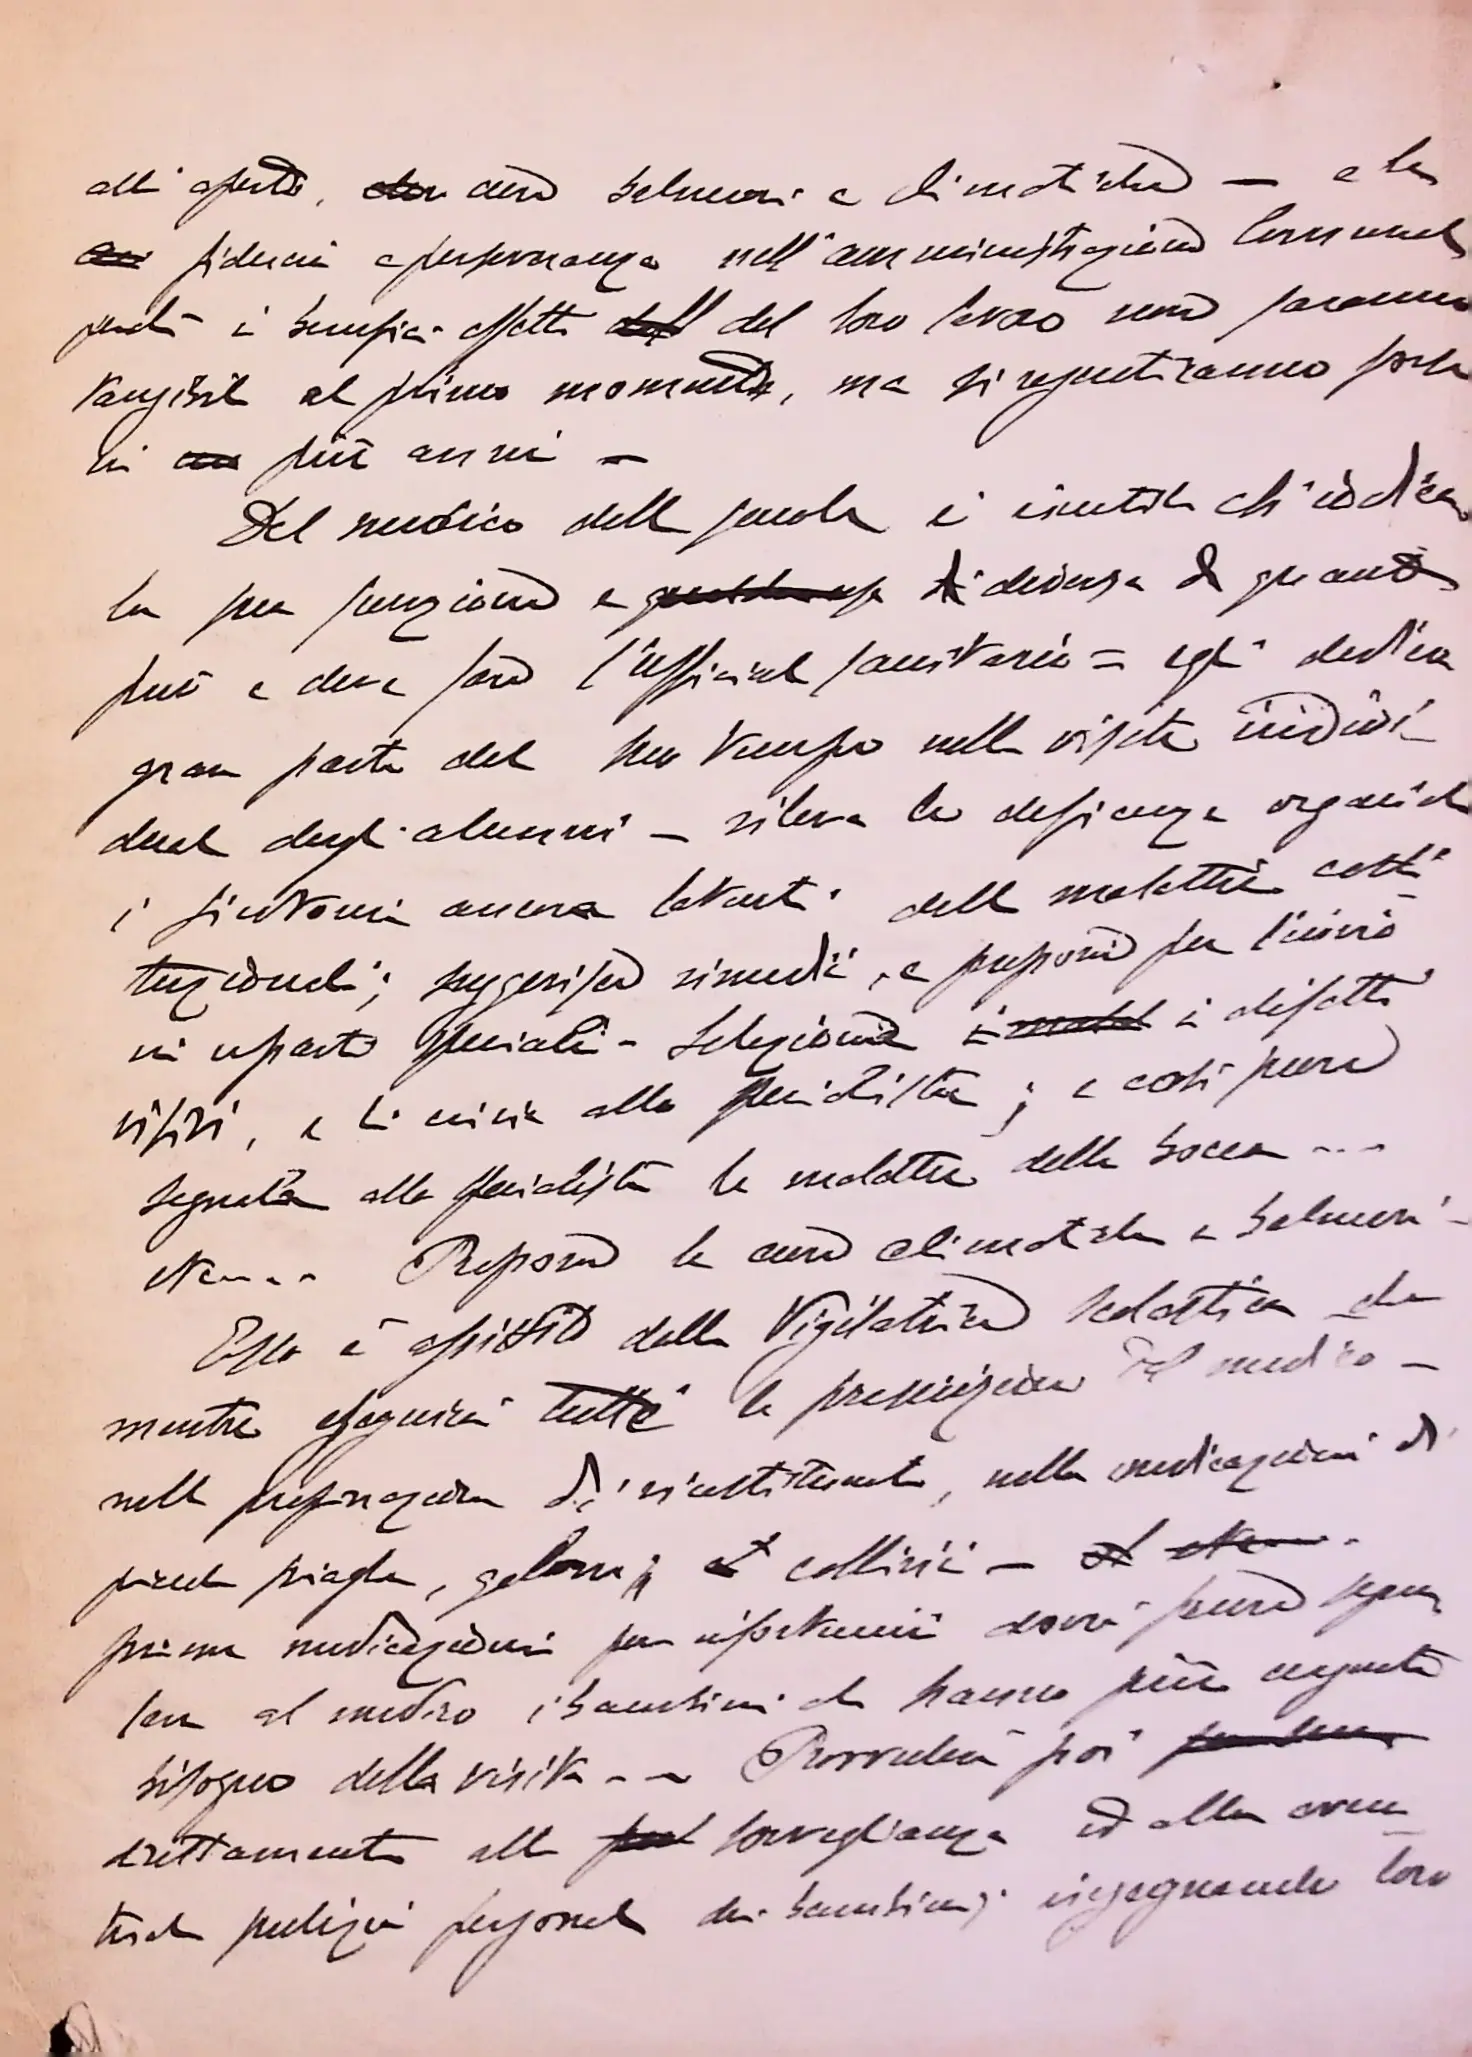 all'aperto, cure balneari e climatiche — e la
fiducia e perseveranza nell'amministrazione Comunale
perché i benefici effetti del loro lavoro non saranno
tangibili al primo momento, ma si ripercuoteranno forse
in più anni —
Del medico delle scuole è inutile ch'io dica
la sua funzione è diversa di quanto
può e deve fare l'ufficiale sanitario = egli dedica
gran parte del suo tempo nelle visite indivi-
duali degli alunni — rileva le deficienze organiche
i sintomi ancora latenti delle malattie costi-
tuzionali; suggerisce rimedii, e propone per l'invio
in reparti speciali - Seleziona i difetti
visivi, e li invia allo specialista; e così pure
segnala allo specialista le malattie della bocca ...
ecc.... Propone le cure climatiche e balneari -
Esso è assistito dalla Vigilatrice scolastica che
mentre eseguirà tutte le prescrizioni del medico —
nelle preparazioni di ricostituenti, nelle medicazioni di
piccole piaghe, geloni; collirii —
prime medicazioni per infortunii dovrà pure segna-
lare al medico i bambini che hanno più urgente
bisogno della visita ... Provvederà poi
direttamente alla sorveglianza ed alla even-
tuale pulizia personale dei bambini; insegnando loro